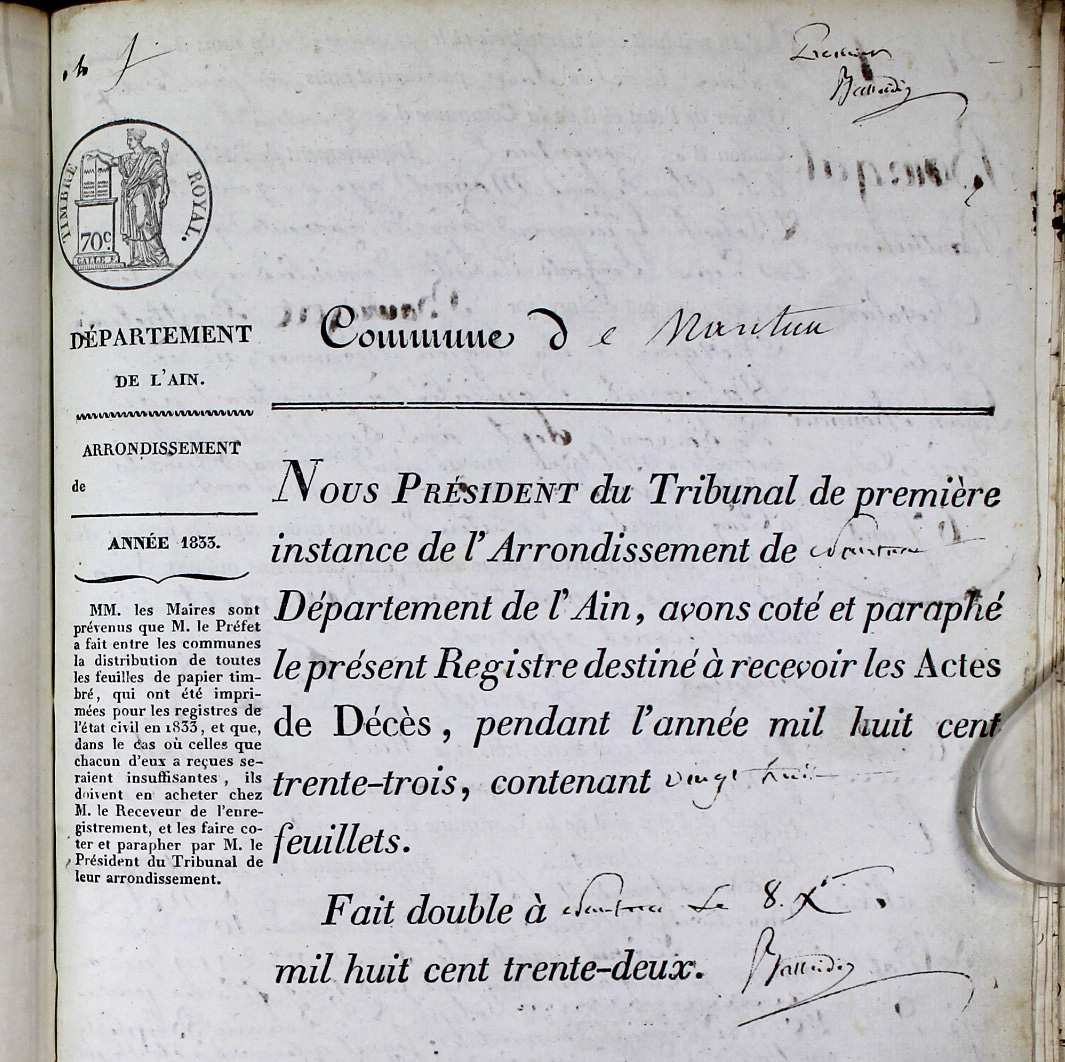 TIMBRE ROYAL.
70c.
DÉPARTEMENT
DE L'AIN.
ARRONDISSEMENT
de
ANNÉE 1833.
MM. les Maires sont
prévenus que M. le Préfet
a fait entre les communes
la distribution de toutes
les feuilles de papier tim-
bré, qui ont été impri-
mées pour les registres de
l'état civil en 1833, et que,
dans le cas où celles que
chacun d'eux a reçues se-
raient insuffisantes, ils
doivent en acheter chez
M. le Receveur de l'enre-
gistrement, et les faire co-
ter et parapher par M. le
Président du Tribunal de
leur arrondissement.
Premier
Commune de Nantua
NOUS PRÉSIDENT du Tribunal de première
instance de l'Arrondissement de Nantua
Département de l'Ain, avons coté et paraphé
le présent Registre destiné à recevoir les Actes
de Décès, pendant l'année mil huit cent
trente-trois, contenant vingt huit
feuillets.
Fait double à Nantua le 8. Xe
mil huit cent trente-deux.